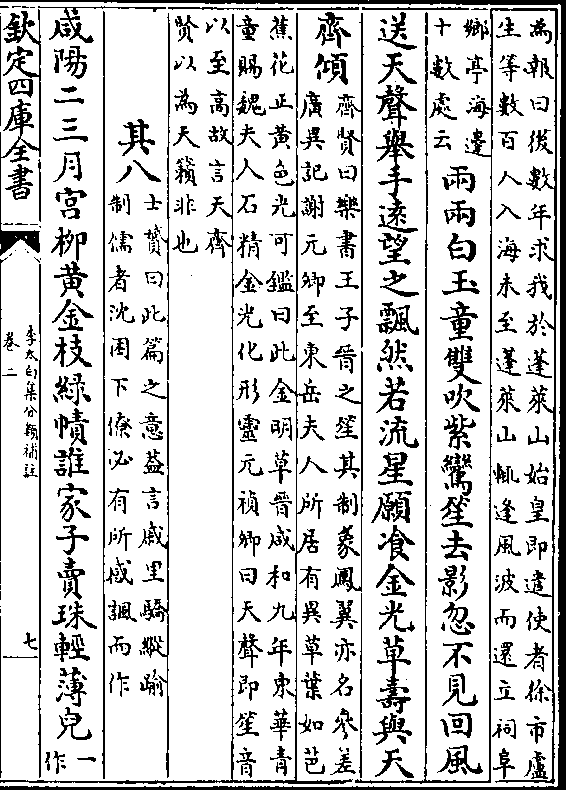 為報曰後數年求我於蓬萊山始皇即遣使者徐市盧
生等數百人入海未至蓬萊山輒逢風波而還立祠阜
鄉亭海邊
十數處云
兩兩白玉童雙吹紫鸞笙去影忽不見回風
送天聲舉手遠望之飄然若流星願飡金光草壽與天
齊傾
齊賢曰樂書王子晉之笙其制象鳳翼亦名參差
廣異記謝元卿至東岳夫人所居有異草葉如芭
蕉花正黃色光可鑑曰此金明草晉咸和九年東華青
童賜魏夫人石精金光化形靈元禎卿曰天聲即笙音
以至高故言天齊
賢以為天籟非也
其八
士贇曰此篇之意葢言戚里驕縱踰
制儒者沈困下僚必有所感諷而作
咸陽二三月宮柳黃金枝綠幘誰家子賣珠輕薄兒
一
作
欽定四庫全書
李太白集分類補註
卷二
七